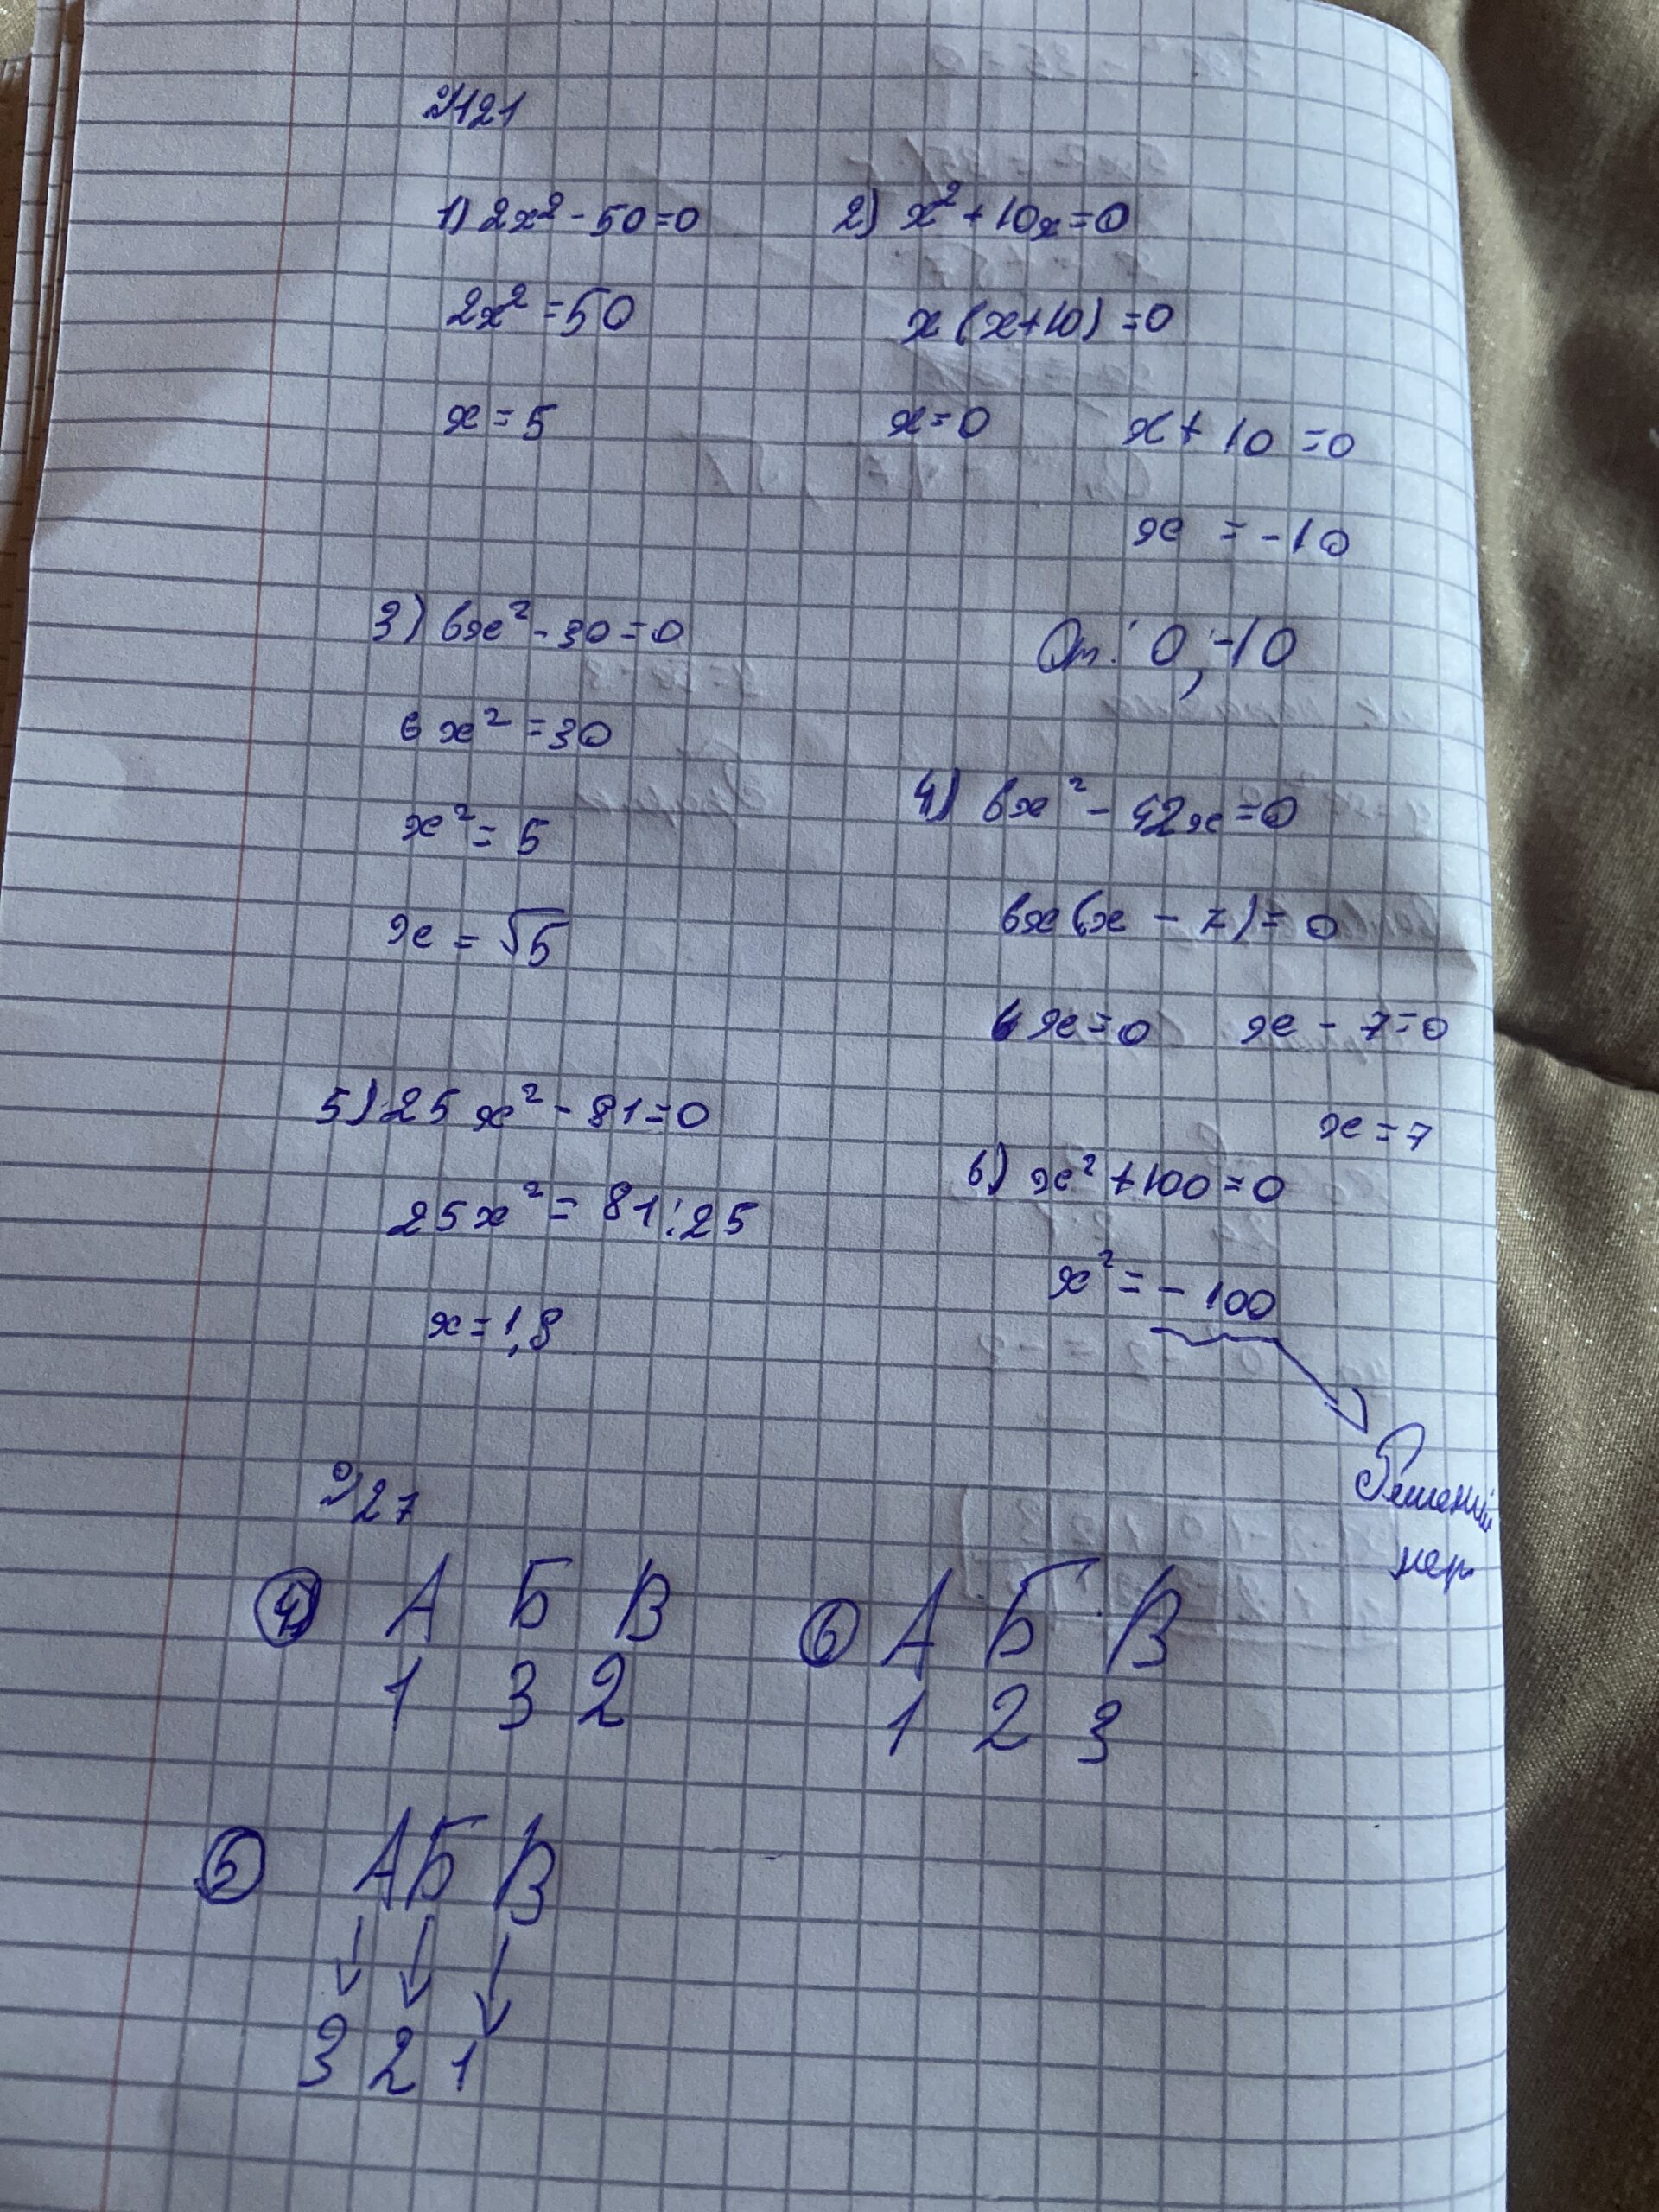 №121
1) 2x² - 50 = 0
2x² = 50
x = 5
2) x² + 10x = 0
x (x+10) = 0
x = 0 x + 10 = 0
x = -10
От: 0; -10
3) 6x² - 30 = 0
6x² = 30
x² = 5
x = √5
4) 6x² - 42x = 0
6x(x - 7) = 0
6x = 0 x - 7 = 0
x = 7
5) 25x² - 81 = 0
25x² = 81:25
x = 1,8
6) x² + 100 = 0
x² = - 100
Решений
нет
№27
4 А Б В
1 3 2
6 А Б В
1 2 3
5 А Б В
3 2 1